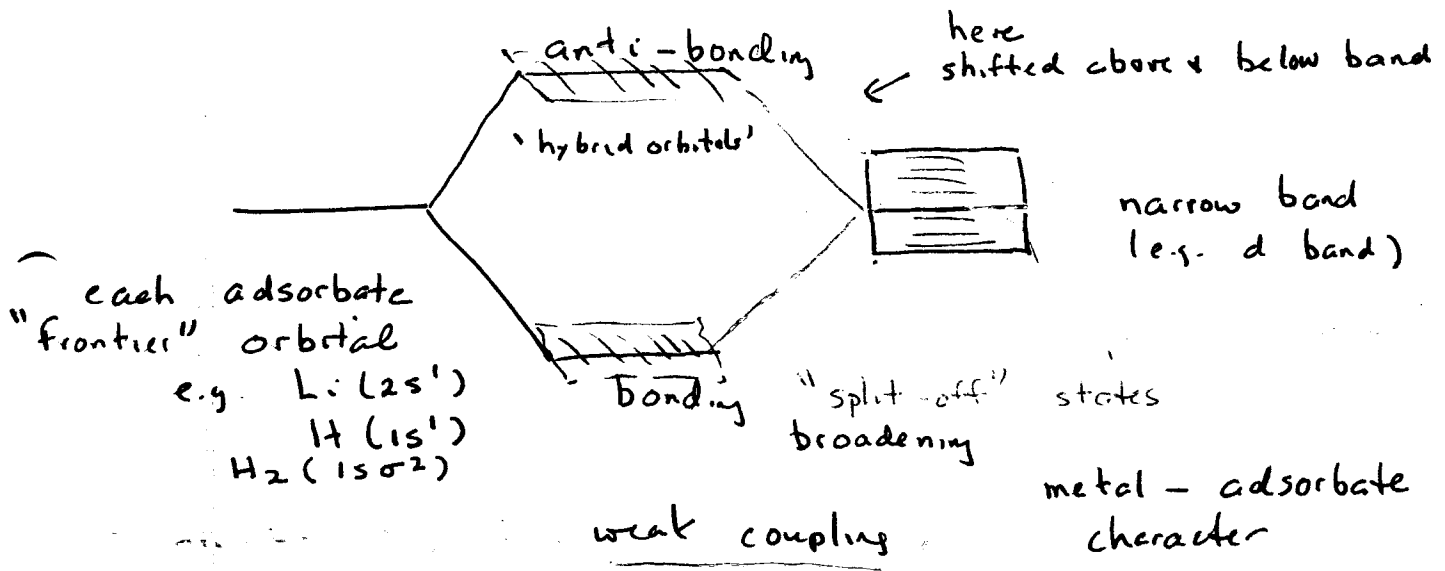 here
anti-bonding
shifted above & below band
'hybrid orbitals'
narrow band
(e.g. d band)
each adsorbate
"frontier" orbital
e.g. Li (2s¹)
H (1s¹)
H₂ (1sσ²)
bonding
"split-off" states
broadening
metal - adsorbate
character
weak coupling